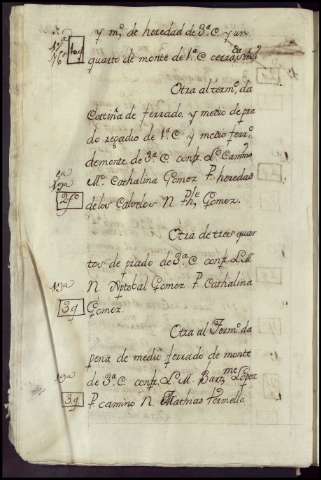 y m.º de heredad de 3.ª C. y un
quarto de monte de 1.ª C. cerrº
Otra al term.º da
Cortiña de ferrado y medio de pra
do regadio de 1.ª C. y medio ferr.º
de monte de 3.ª C. confr. L.e Camino
M. Cathalina Gomez P. heredas
de los Calvelos N. Ph.e Gomez.
2f.o
Otra de tres quar
tos de prado de 3.ª C. confr. L. M.
N. Xptobal Gomez P. Cathalina
Gomez.
3q
Otra al Term.º da
pena de medio ferrado de monte
de 3.ª C. confr. L.e M. Bartme Lopez
P. camino N. Mathias Formella
3q